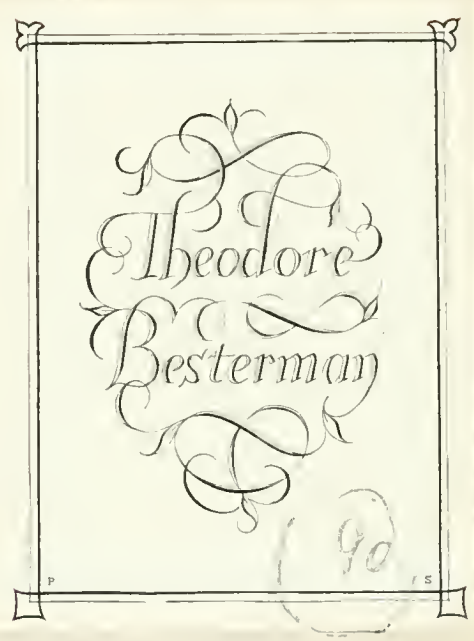 Theodore
Besterman
90
P S